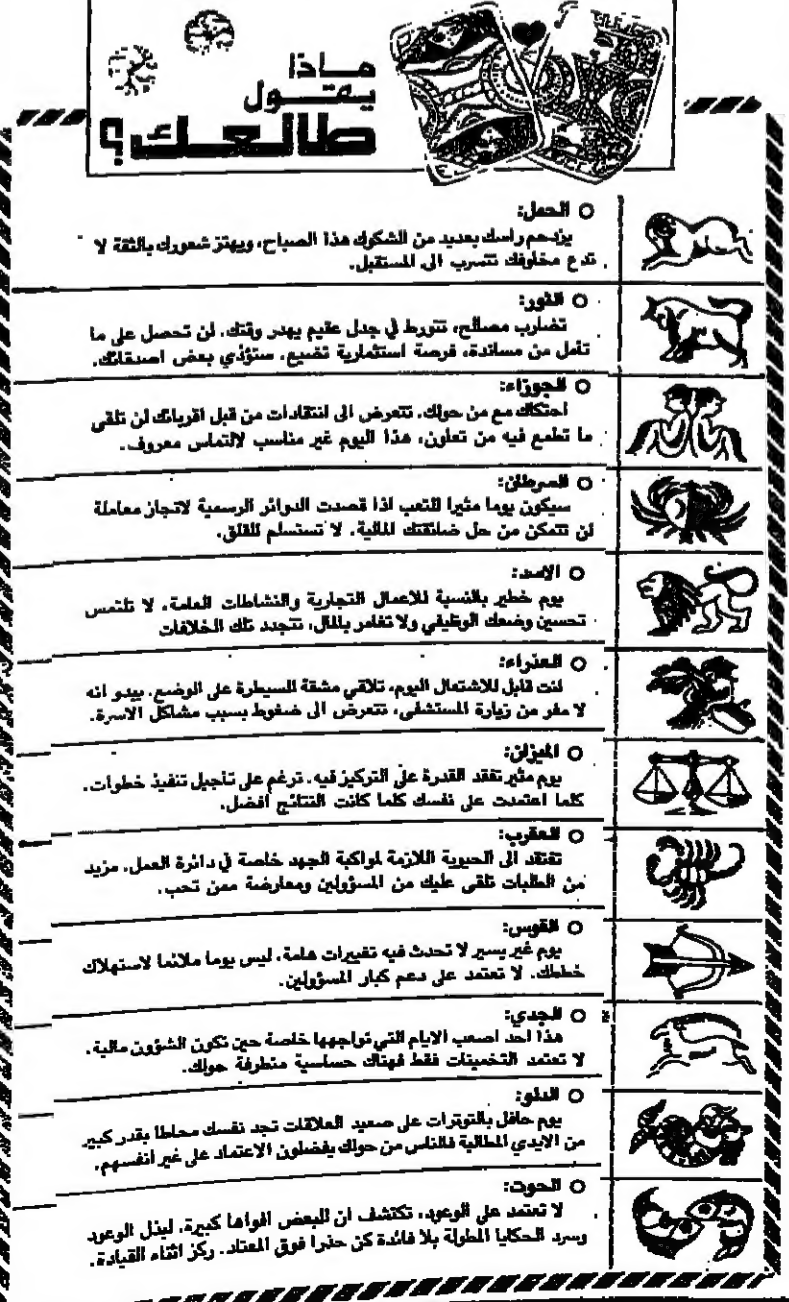 ماذا
يقول
طالعك؟
○ الحمل:
يزدحم راسك بعديد من الشكوك هذا الصباح، ويهتز شعورك بالثقة لا
تدع مخاوفك تتسرب الى المستقبل.
○ الثور:
تضارب مصالح، تتورط في جدل عقيم يهدر وقتك. لن تحصل على ما
تأمل من مساندة، فرصة استثمارية تضيع. ستؤذي بعض اصدقائك.
○ الجوزاء:
احتكاك مع من حولك. تتعرض الى انتقادات من قبل اقربائك لن تلقى
ما تطمع فيه من تعاون، هذا اليوم غير مناسب لالتماس معروف.
○ السرطان:
سيكون يوما مثيرا للتعب اذا قصدت الدوائر الرسمية لانجاز معاملة
لن تتمكن من حل ضائقتك المالية. لا تستسلم للقلق.
○ الاسد:
يوم خطير بالنسبة للاعمال التجارية والنشاطات العامة. لا تلتمس
تحسين وضعك الوظيفي ولا تغامر بالمال، تتجدد تلك الخلافات
○ العذراء:
انت قابل للاشتعال اليوم، تلاقي مشقة للسيطرة على الوضع. يبدو انه
لا مفر من زيارة المستشفى، تتعرض الى ضغوط بسبب مشاكل الاسرة.
○ الميزان:
يوم مثير تفقد القدرة على التركيز فيه. ترغم على تأجيل تنفيذ خطوات.
كلما اعتمدت على نفسك كلما كانت النتائج أفضل.
○ العقرب:
تفتقد الى الحيوية اللازمة لمواكبة الجهد خاصة في دائرة العمل. مزيد
من الطلبات تلقى عليك من المسؤولين ومعارضة ممن تحب.
○ القوس:
يوم غير يسير لا تحدث فيه تغييرات هامة. ليس يوما ملائما لاستهلاك
خططك. لا تعتمد على دعم كبار المسؤولين.
○ الجدي:
هذا احد اصعب الايام التي تواجهها خاصة حين تكون الشؤون مالية.
لا تعتمد التخمينات فقط فهناك حساسية متطرفة حولك.
○ الدلو:
يوم حافل بالتوترات على صعيد العلاقات تجد نفسك محاطا بقدر كبير
من الايدي المطالبة فالناس من حولك يفضلون الاعتماد على غير انفسهم.
○ الحوت:
لا تعتمد على الوعود، تكتشف ان للبعض افواها كبيرة. لبذل الوعود
وسرد الحكايا المطولة بلا فائدة كن حذرا فوق المعتاد. ركز اثناء القيادة.